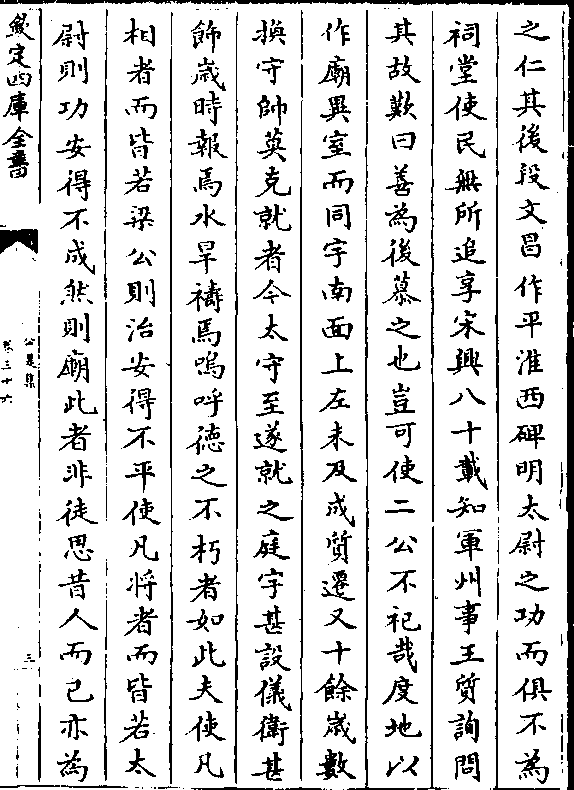 之仁其後段文昌作平淮西碑明太尉之功而俱不為
祠堂使民無所追享宋興八十載知軍州事王質詢問
其故歎曰善為後慕之也豈可使二公不祀哉度地以
作廟異室而同宇南面上左未及成質遷又十餘歲數
換守帥莫克就者今太守至遂就之庭宇甚設儀衛甚
飾歲時報焉水旱禱焉嗚呼德之不朽者如此夫使凡
相者而皆若梁公則治安得不平使凡將者而皆若太
尉則功安得不成然則廟此者非徒思昔人而已亦為
欽定四庫全書
公是集
卷三十六
三